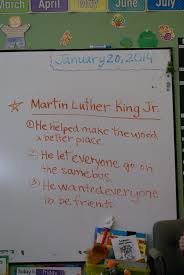 March
April
May
June
January 20, 2014
Martin Luther King Jr.
① He helped make the word
a better place
② He let everyone go on
the same bus.
③ He wanted everyone
to be friends
Today is